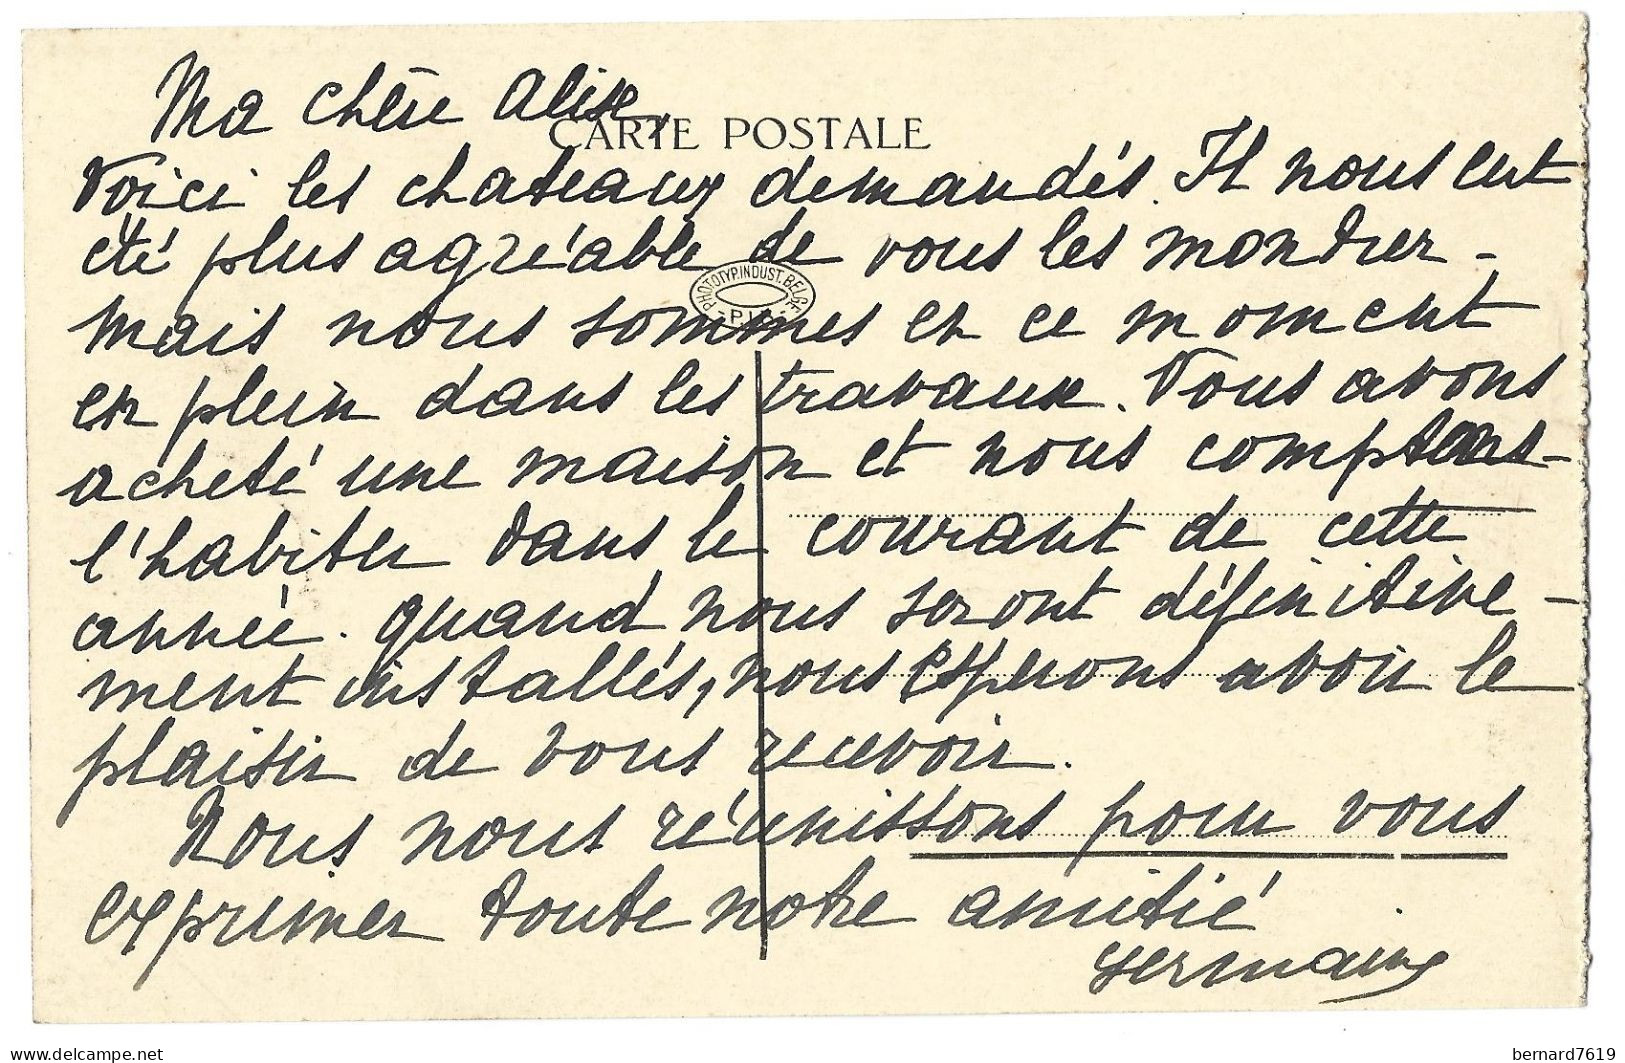 Ma chère Alix,
CARTE POSTALE
Voici les chateaux demandés. Il nous eut
été plus agréable de vous les montrer -
PHOTOTYP. INDUST. BELGE
mais nous sommes en ce moment
en plein dans les travaux. Nous avons
acheté une maison et nous comptons
l'habiter dans le courant de cette
année. quand nous seront définitive-
ment installés, nous espérons avoir le
plaisir de vous recevoir.
Nous nous réunissons pour vous
exprimer toute notre amitié
Germaine
bernard7619